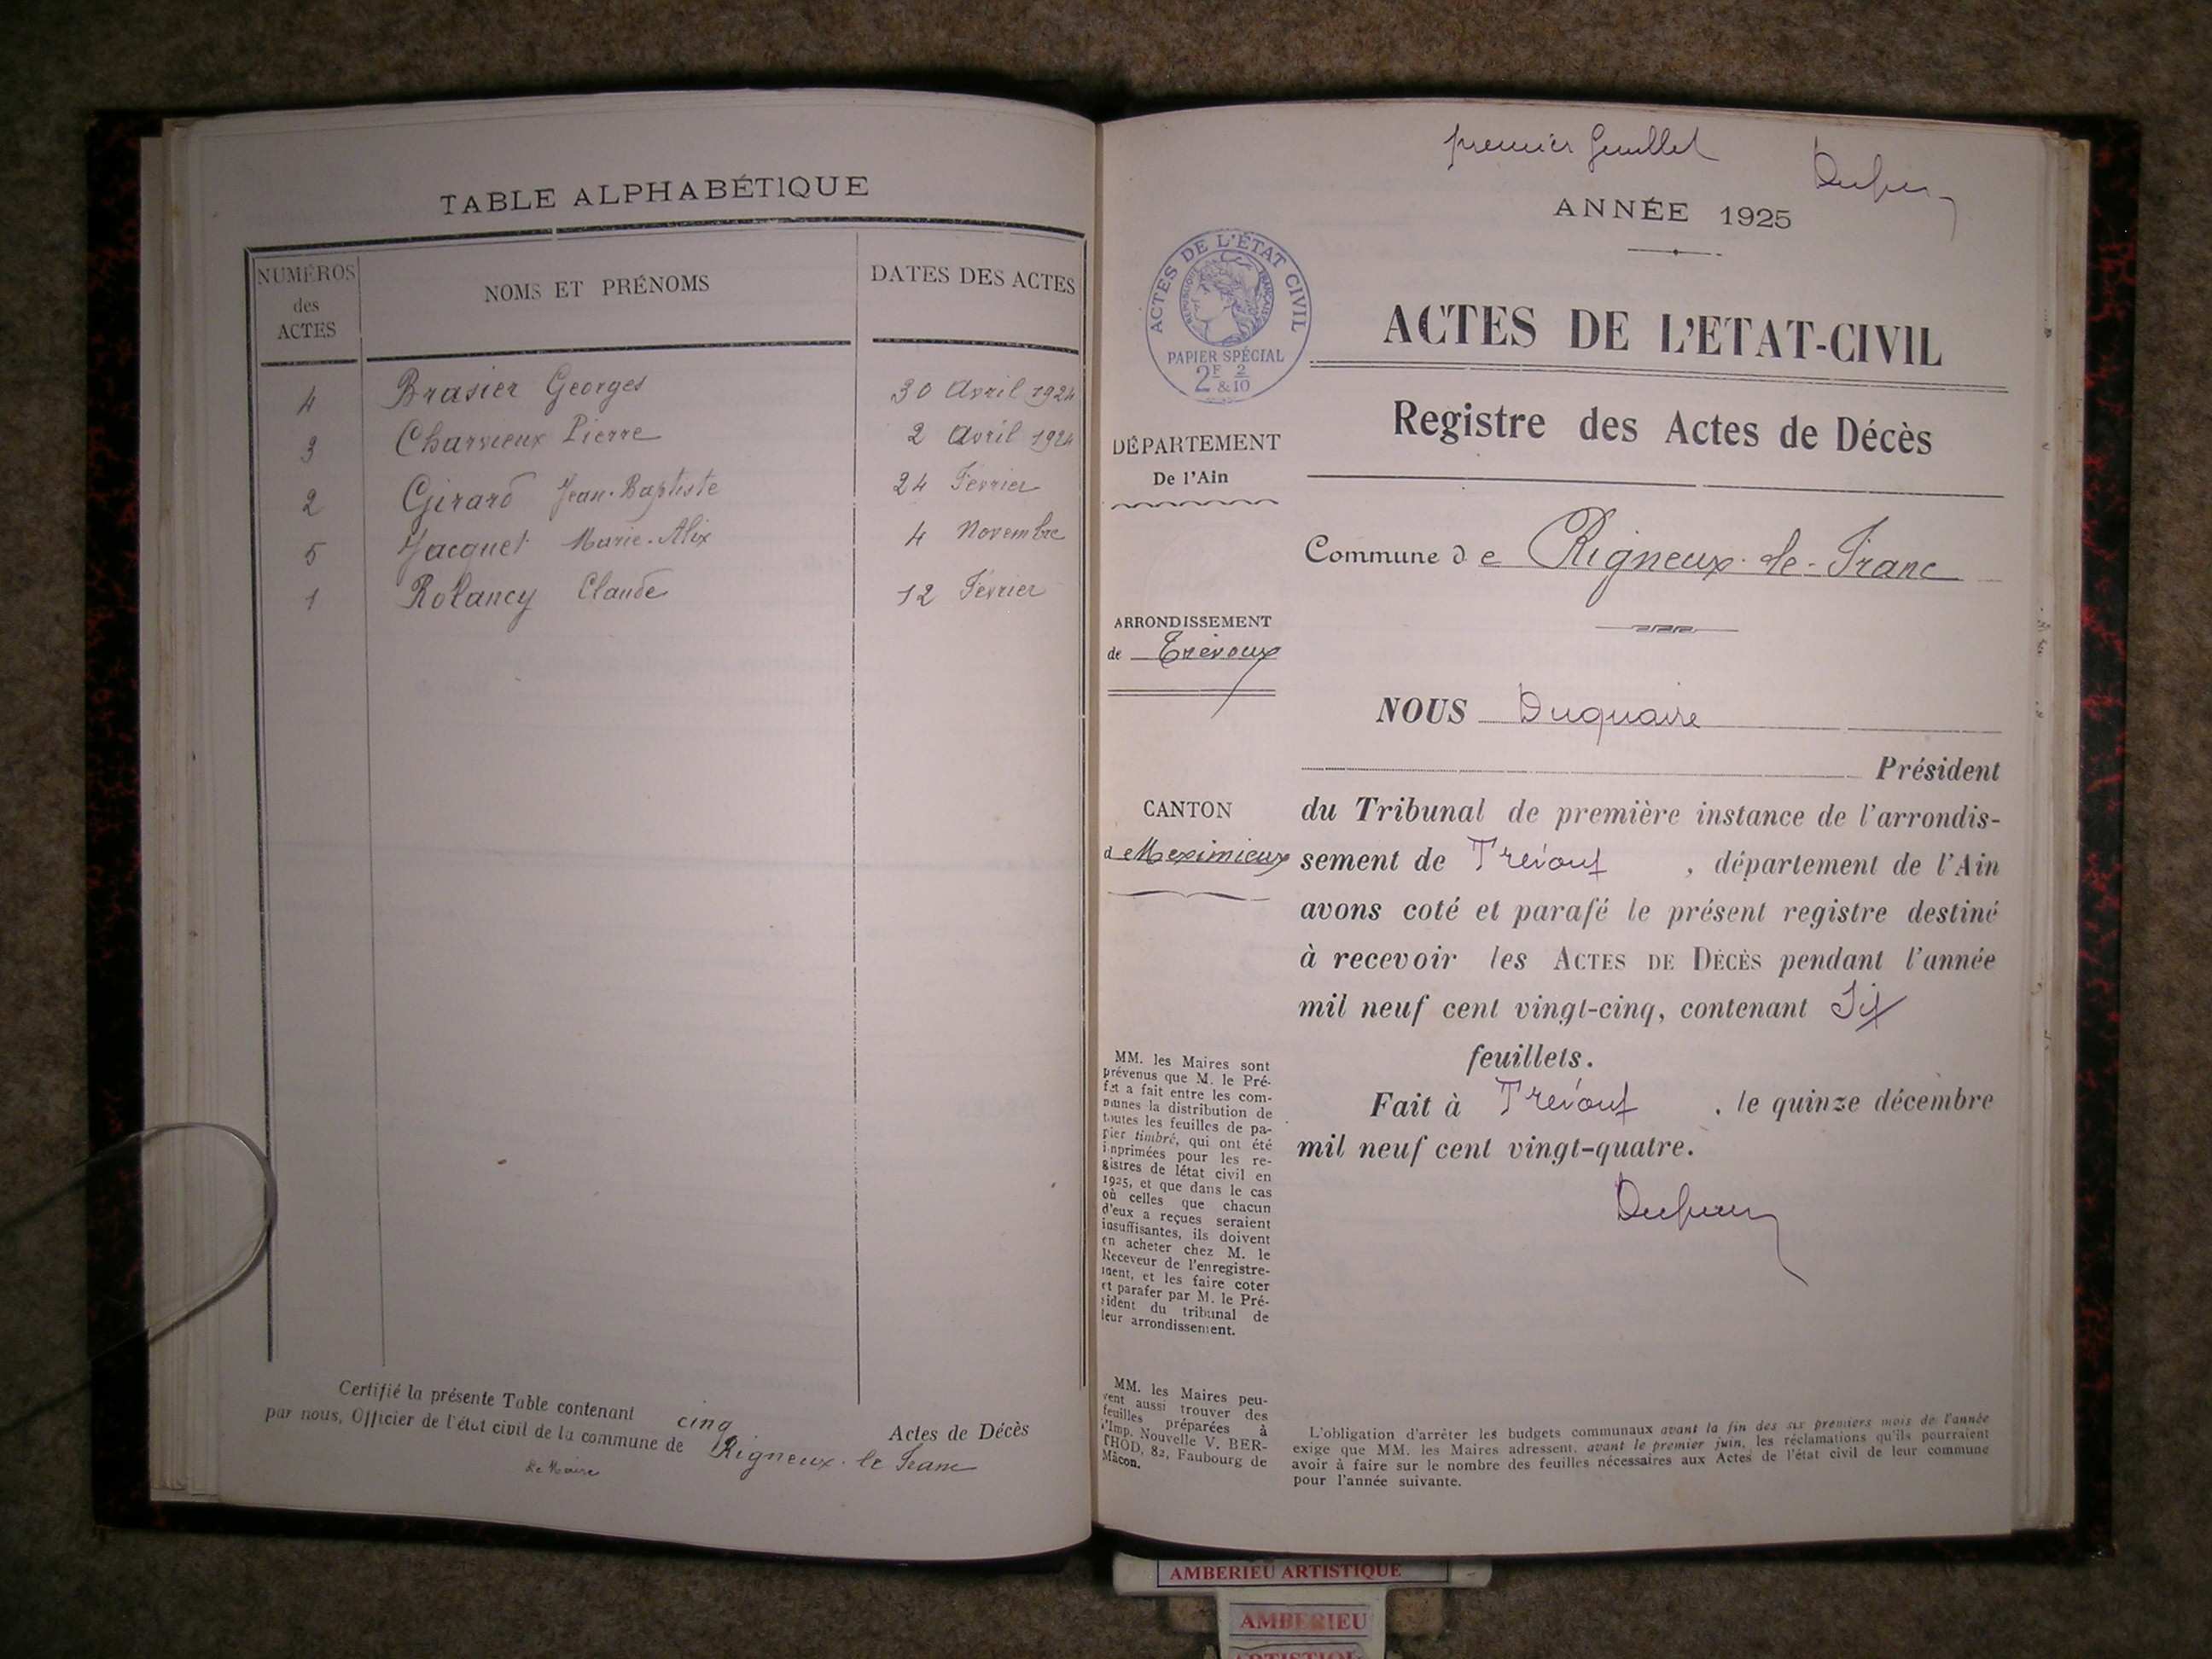 TABLE ALPHABÉTIQUE
NUMÉROS
des
ACTES
NOMS ET PRÉNOMS
DATES DES ACTES
4 Brasier Georges 30 Avril 1924
3 Charvieux Pierre 2 Avril 1924
2 Girard Jean-Baptiste 24 Février
5 Jacquet Marie-Alix 4 Novembre
1 Rolancy Claude 12 Février
Certifié la présente Table contenant cinq Actes de Décès
par nous, Officier de l'état civil de la commune de Rigneux-le-Franc
Le Maire
premier feuillet
ANNÉE 1925
ACTES DE L'ÉTAT CIVIL
RÉPUBLIQUE FRANÇAISE
PAPIER SPÉCIAL
2F 2/10
&10
ACTES DE L'ETAT-CIVIL
Registre des Actes de Décès
DÉPARTEMENT
De l'Ain
Commune de Rigneux-le-Franc
ARRONDISSEMENT
de Trévoux
CANTON
de Meximieux
NOUS Duquaire
Président
du Tribunal de première instance de l'arrondis-
sement de Trévoux , département de l'Ain
avons coté et parafé le présent registre destiné
à recevoir les ACTES DE DÉCÈS pendant l'année
mil neuf cent vingt-cinq, contenant Six
feuillets.
Fait à Trévoux , le quinze décembre
mil neuf cent vingt-quatre.
MM. les Maires sont
prévenus que M. le Pré-
fet a fait entre les com-
munes la distribution de
toutes les feuilles de pa-
pier timbré, qui ont été
imprimées pour les re-
gistres de létat civil en
1925, et que dans le cas
où celles que chacun
d'eux a reçues seraient
insuffisantes, ils doivent
en acheter chez M. le
Receveur de l'enregistre-
ment, et les faire coter
et parafer par M. le Pré-
sident du tribunal de
leur arrondissement.
MM. les Maires peu-
vent aussi trouver des
feuilles préparées à
l'Imp. Nouvelle V. BER-
THOD, 82, Faubourg de
Mâcon.
L'obligation d'arrêter les budgets communaux avant la fin des six premiers mois de l'année
exige que MM. les Maires adressent, avant le premier juin, les réclamations qu'ils pourraient
avoir à faire sur le nombre des feuilles nécessaires aux Actes de l'état civil de leur commune
pour l'année suivante.
AMBERIEU ARTISTIQUE
AMBERIEU